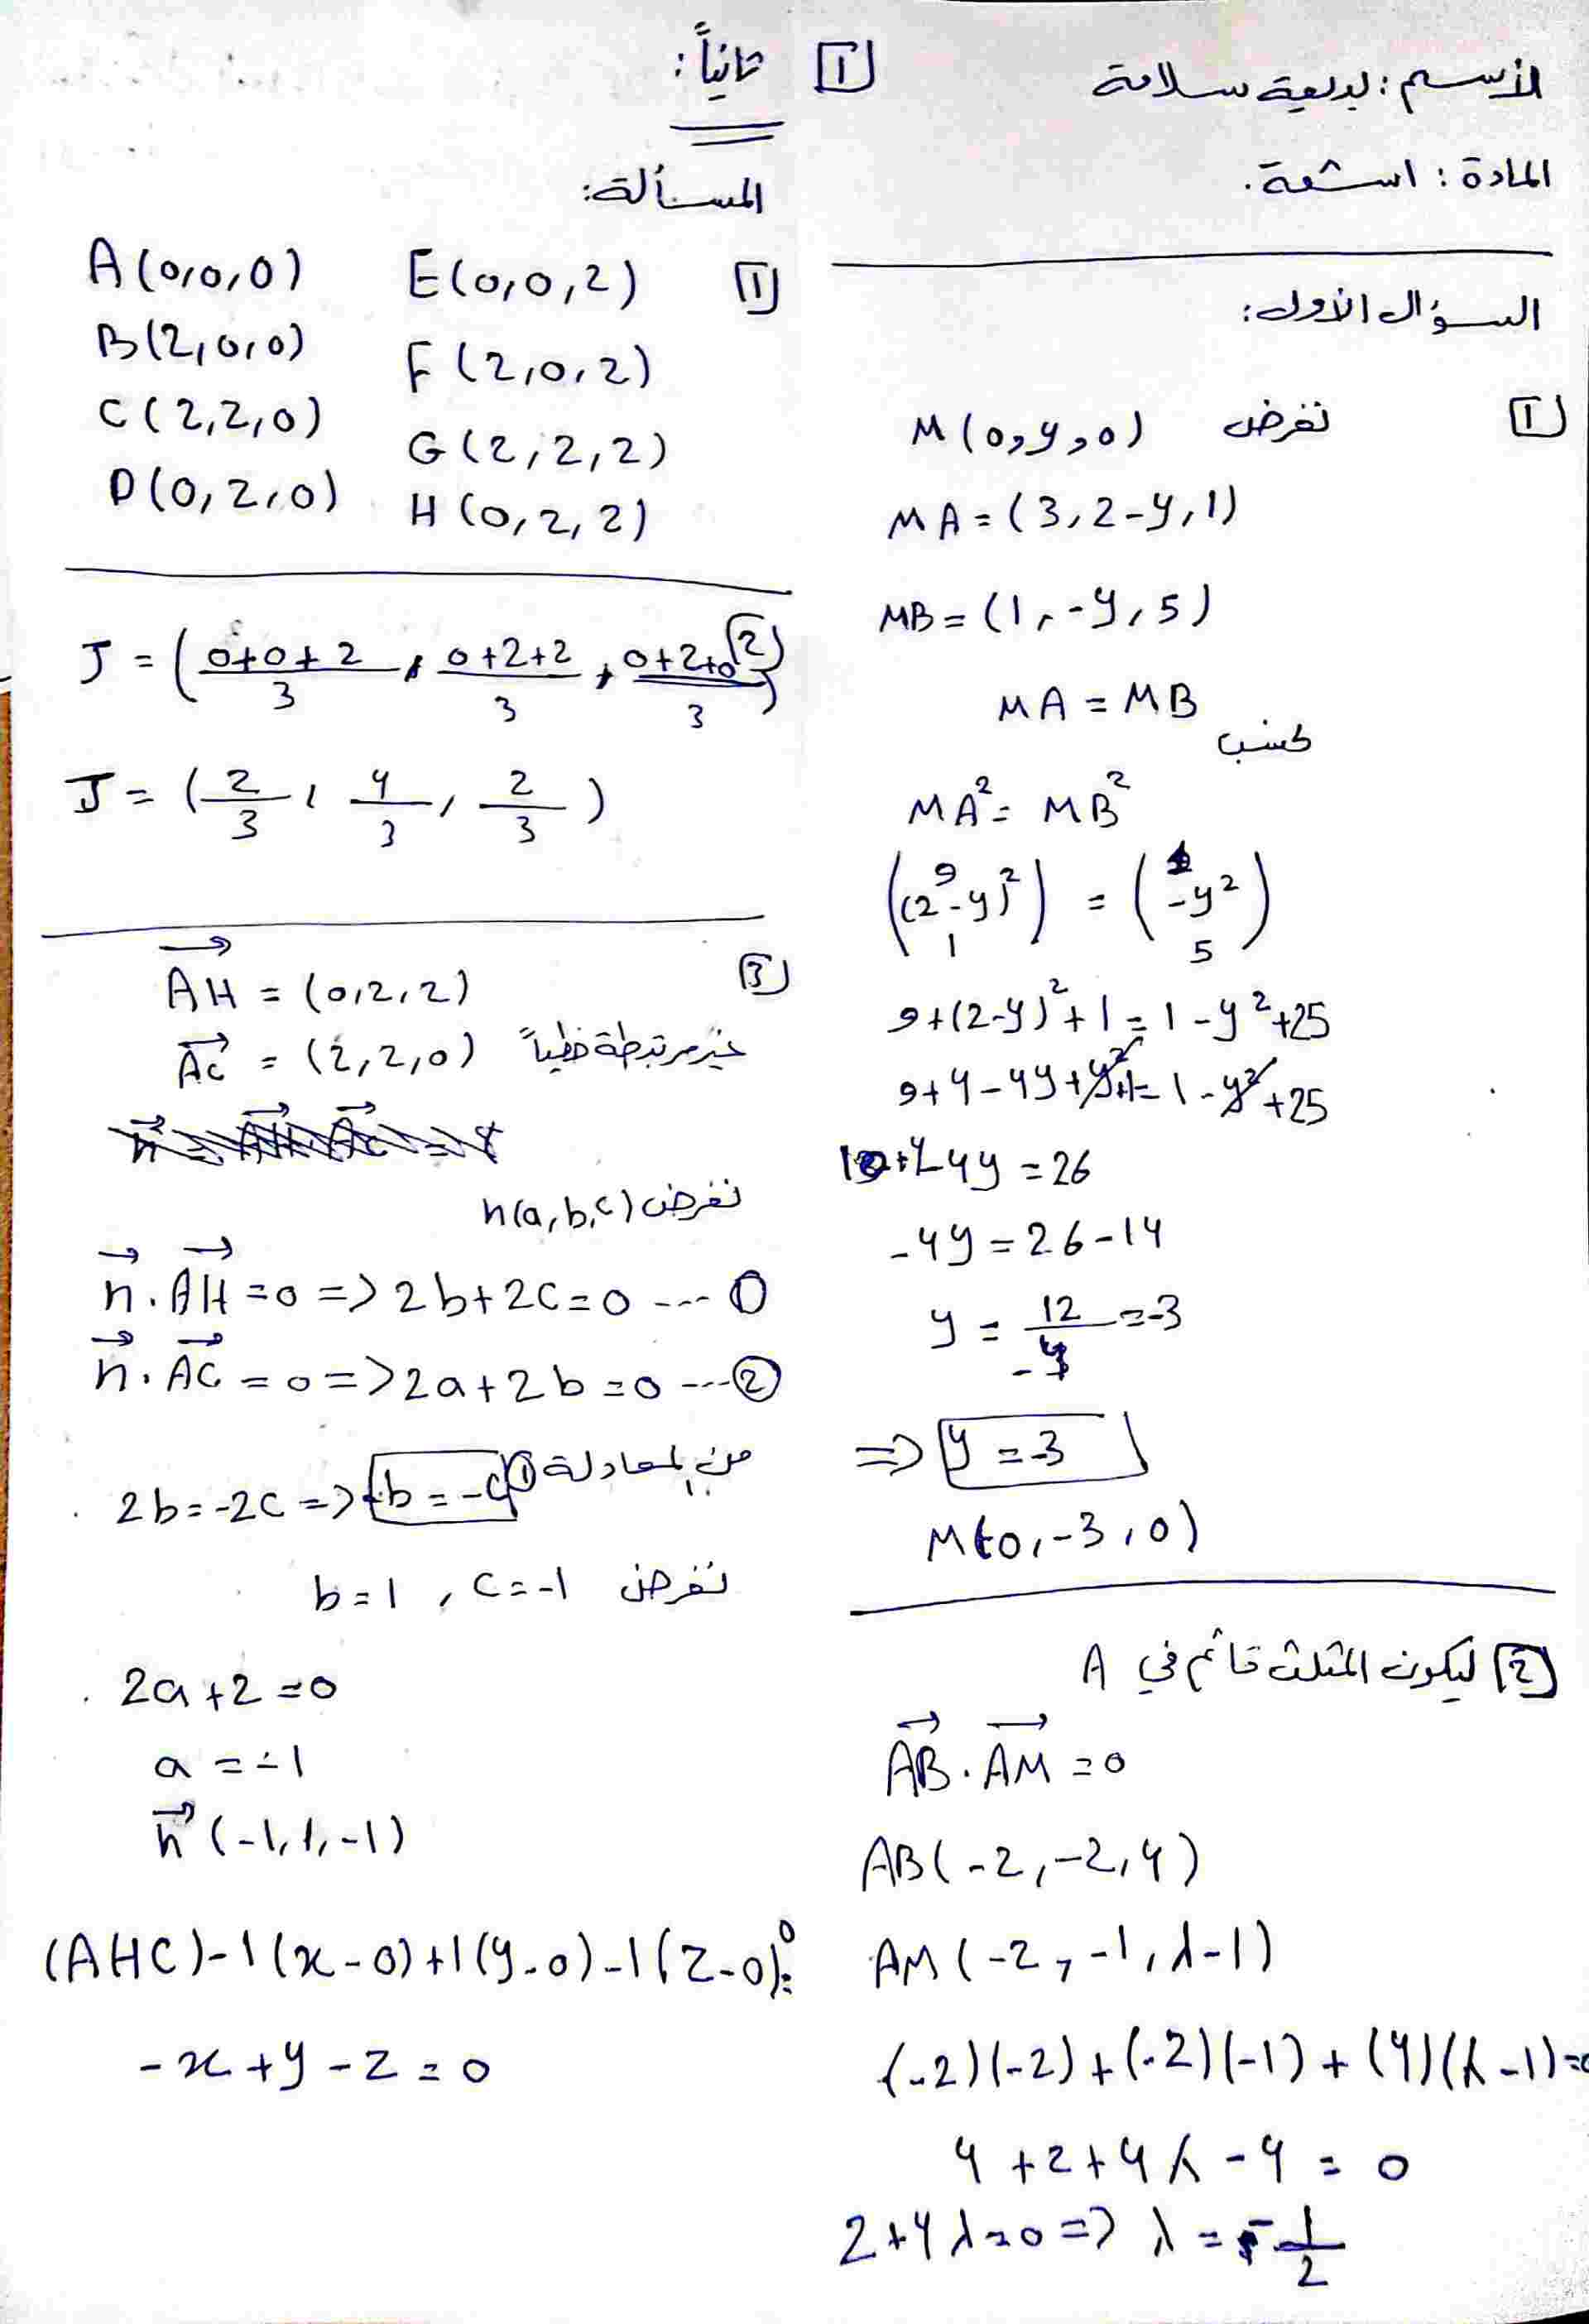 الأسم : لبديعية سلامة
المادة : اسئعة.
السؤال الأول:
1 نفرض M(0,y,0)
MA = (3,2-y,1)
MB = (1,-y,5)
MA = MB
MA² = MB²
9+(2-y)²+1 = 1-y²+25
9+4-4y+y²+1 = 1-y²+25
-4y = 26
-4y = 26-14
y = 12/-4 = -3
=> y = -3
M(0,-3,0)
2 ليكون المثلث قائم في A
AB . AM = 0
AB(-2,-2,4)
AM(-2,-1,λ-1)
(-2)(-2)+(-2)(-1)+(4)(λ-1)=0
4+2+4λ-4 = 0
2+4λ=0 => λ = -1/2
1 ثانياً:
المسألة:
1
A(0,0,0) E(0,0,2)
B(2,0,0) F(2,0,2)
C(2,2,0) G(2,2,2)
D(0,2,0) H(0,2,2)
2
J = (0+0+2/3, 0+2+2/3, 0+2+0/3)
J = (2/3, 4/3, 2/3)
3
AH = (0,2,2)
AC = (2,2,0) غير مرتبطة خطياً
نفرض n(a,b,c)
n . AH = 0 => 2b+2c=0 ---- ①
n . AC = 0 => 2a+2b=0 ---- ②
من المعادلة ①
2b=-2c => b = -c
نفرض b=1 , c=-1
2a+2=0
a = -1
n(-1,1,-1)
(AHC) -1(x-0)+1(y-0)-1(z-0)=0
-x+y-z=0